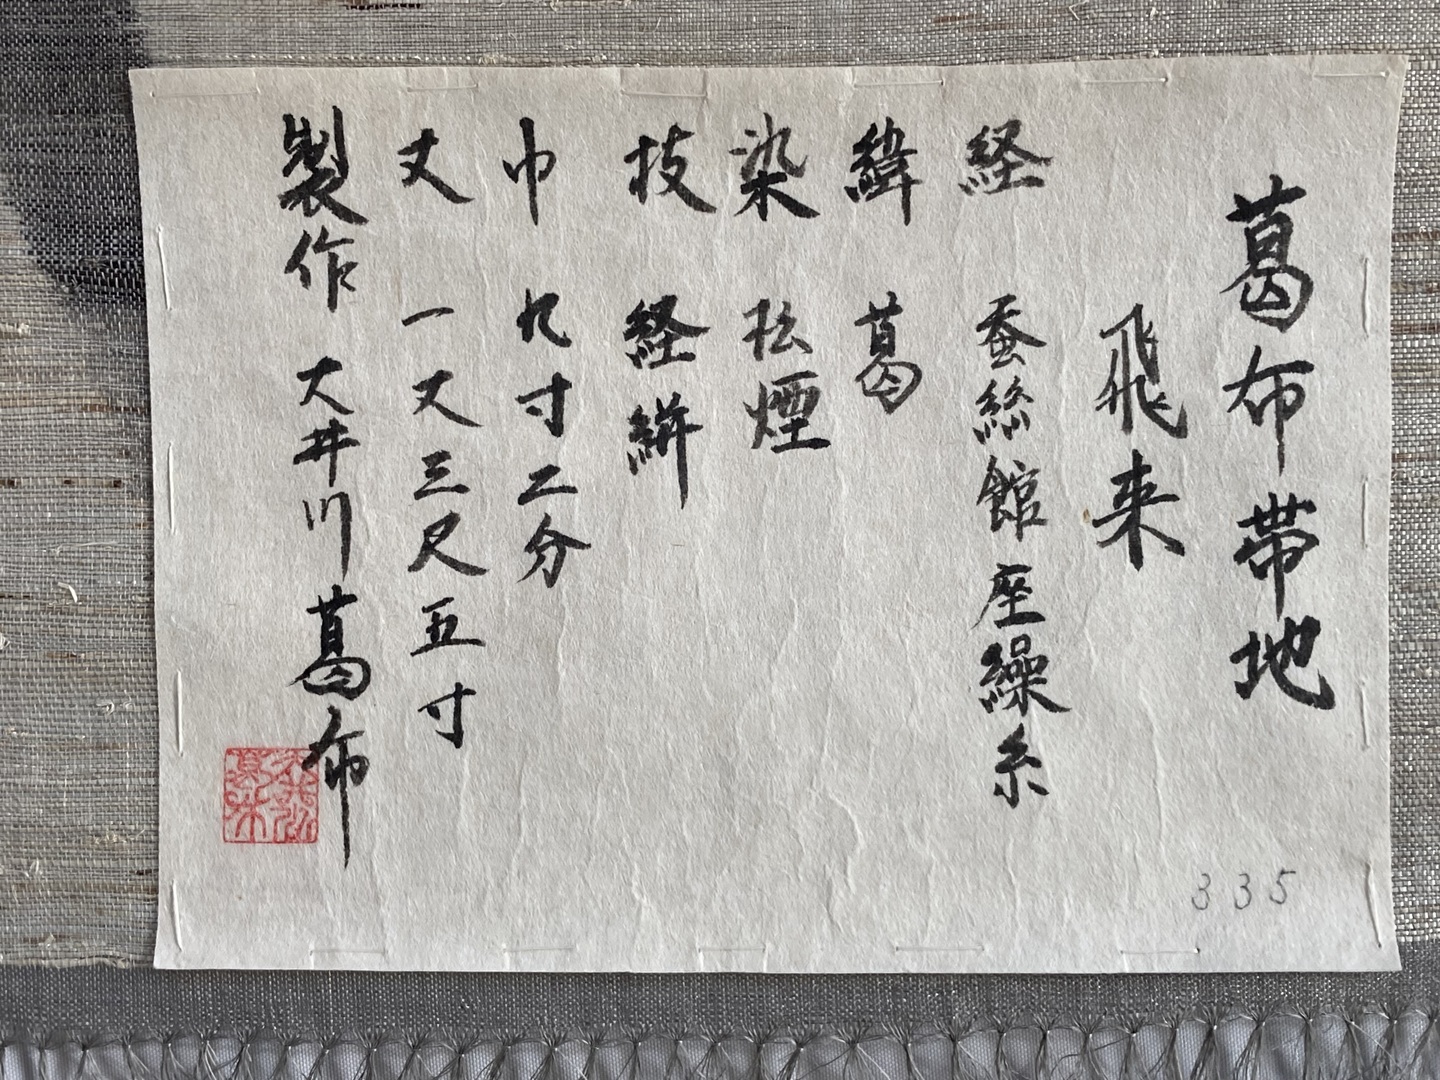 葛布帯地
飛来
経 蚕絲館座繰糸
緯 葛
染 松煙
技 経絣
巾 九寸二分
丈 一丈三尺五寸
製作 大井川葛布
335